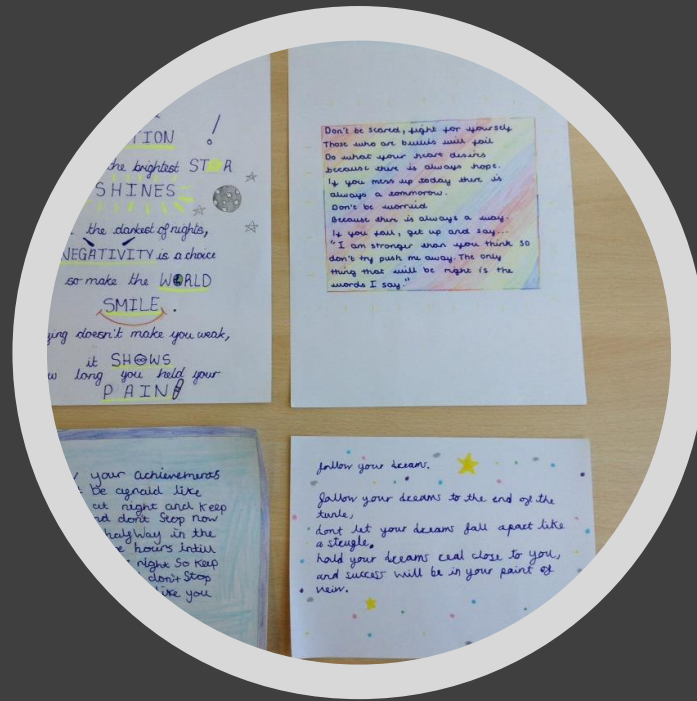 TION !
the brightest STAR
SHINES
the darkest of nights,
NEGATIVITY is a choice
so make the WORLD
SMILE.
ying doesn't make you weak,
it SHOWS
w long you held your
PAIN
Don't be scared, fight for yourself
Those who are bullies will fail
Do what your heart desires
because there is always hope.
If you mess up today there is
always a tommorow.
Don't be worried
Because there is always a way.
If you fail, get up and say...
"I am stronger than you think so
don't try push me away. The only
thing that will be right is the
words I say."
your achievements
be afraid like
out right and keep
nd dont Stop now
halfway in the
hours Intill
right So Keep
don't Stop
like you
follow your dream.
follow your dreams to the end of the
tunle,
dont let your dreams fall apart like
a stugle,
hold your dreams real close to you,
and success will be in your point of
veiw.